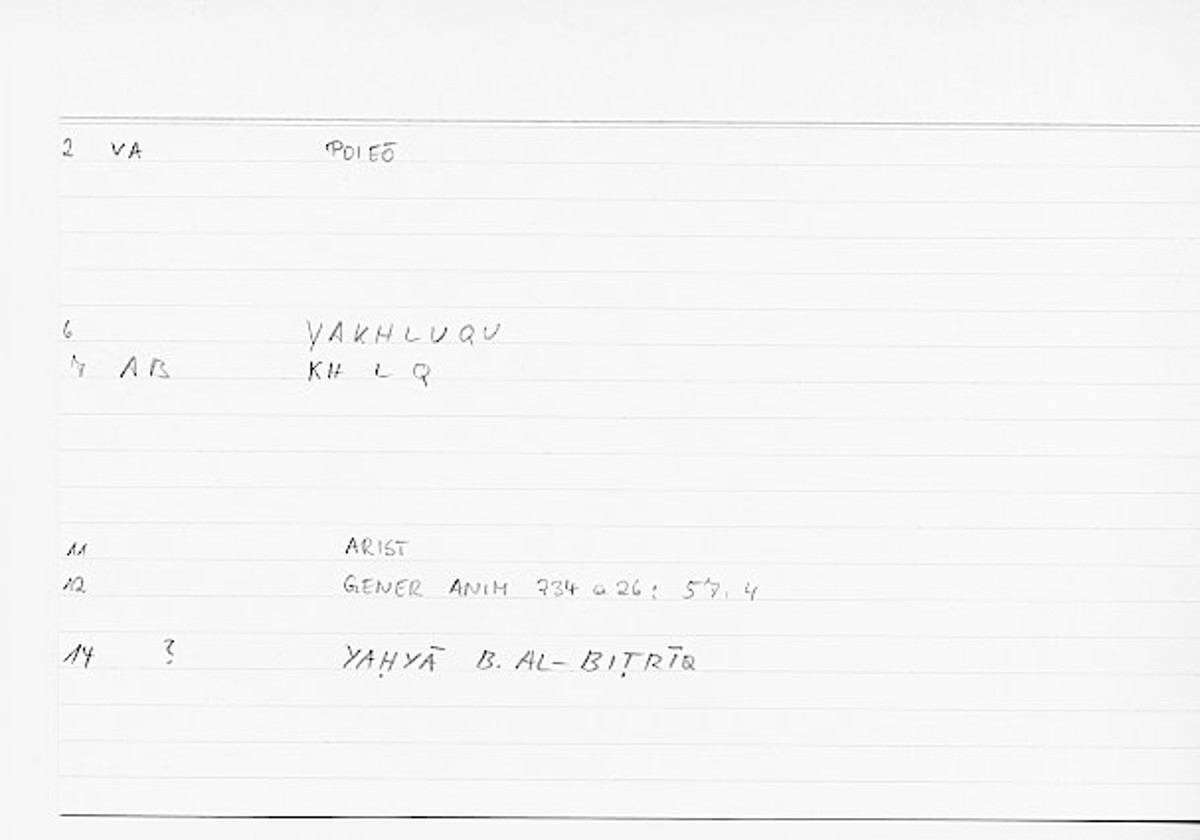 2 VA POIEŌ
6 YAKHLUQU
7 AB KH L Q
11 ARIST
12 GENER ANIM 734 a 26: 57. 4
14 ? YAḤYĀ B. AL-BIṬRĪQ